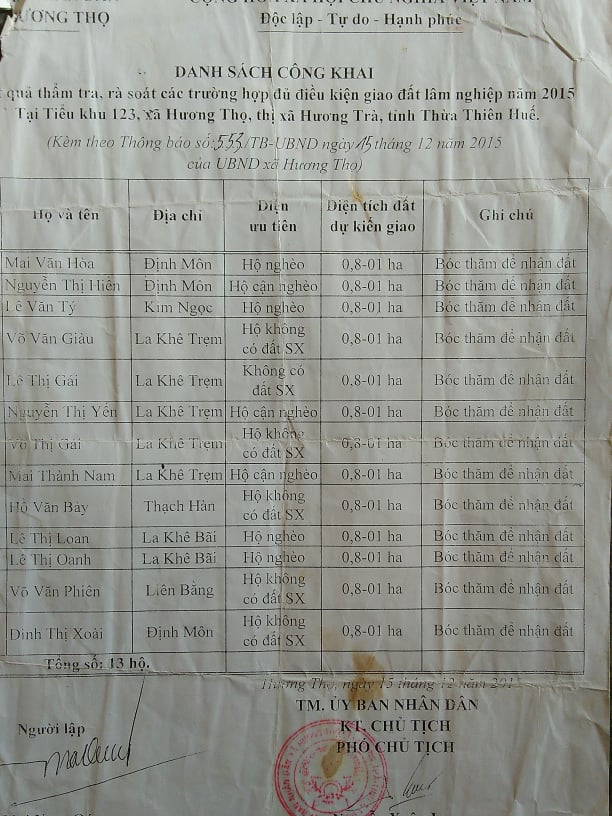 ƯƠNG THỌ
Độc lập - Tự do - Hạnh phúc
DANH SÁCH CÔNG KHAI
quả thẩm tra, rà soát các trường hợp đủ điều kiện giao đất lâm nghiệp năm 2015
Tại Tiểu khu 123, xã Hương Thọ, thị xã Hương Trà, tỉnh Thừa Thiên Huế.
(Kèm theo Thông báo số: 553/TB-UBND ngày 15 tháng 12 năm 2015
của UBND xã Hương Thọ)
Họ và tên Địa chỉ Diện ưu tiên Diện tích đất dự kiến giao Ghi chú
Mai Văn Hòa Định Môn Hộ nghèo 0,8-01 ha Bóc thăm để nhận đất
Nguyễn Thị Hiền Định Môn Hộ cận nghèo 0,8-01 ha Bóc thăm để nhận đất
Lê Văn Tý Kim Ngọc Hộ nghèo 0,8-01 ha Bóc thăm để nhận đất
Võ Văn Giàu La Khê Trẹm Hộ không có đất SX 0,8-01 ha Bóc thăm để nhận đất
Lê Thị Gái La Khê Trẹm Không có đất SX 0,8-01 ha Bóc thăm để nhận đất
Nguyễn Thị Yến La Khê Trẹm Hộ cận nghèo 0,8-01 ha Bóc thăm để nhận đất
Võ Thị Gái La Khê Trẹm Hộ không có đất SX 0,8-01 ha Bóc thăm để nhận đất
Mai Thành Nam La Khê Trẹm Hộ cận nghèo 0,8-01 ha Bóc thăm để nhận đất
Hồ Văn Bảy Thạch Hàn Hộ không có đất SX 0,8-01 ha Bóc thăm để nhận đất
Lê Thị Loan La Khê Bãi Hộ nghèo 0,8-01 ha Bóc thăm để nhận đất
Lê Thị Oanh La Khê Bãi Hộ nghèo 0,8-01 ha Bóc thăm để nhận đất
Võ Văn Phiên Liên Bằng Hộ không có đất SX 0,8-01 ha Bóc thăm để nhận đất
Đinh Thị Xoài Định Môn Hộ không có đất SX 0,8-01 ha Bóc thăm để nhận đất
Tổng số: 13 hộ.
Hương Thọ, ngày 15 tháng 12 năm 2015
TM. ỦY BAN NHÂN DÂN
Người lập
KT. CHỦ TỊCH
PHÓ CHỦ TỊCH